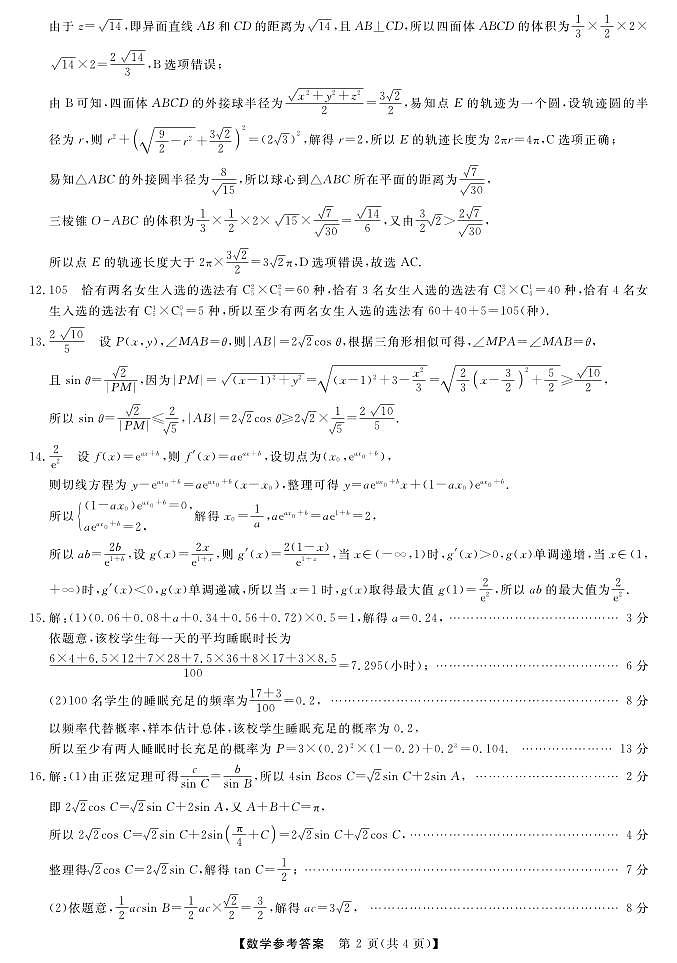 由于 z=√14,即异面直线 AB 和 CD 的距离为√14,且 AB⊥CD,所以四面体 ABCD 的体积为 1/3×1/2×2×
√14×2=2√14/3,B 选项错误;
由 B 可知,四面体 ABCD 的外接球半径为 √(x²+y²+z²)/2=3√2/2,易知点 E 的轨迹为一个圆,设轨迹圆的半
径为 r,则 r²+(√(9/2-r²)+3√2/2)²=(2√3)²,解得 r=2,所以 E 的轨迹长度为 2πr=4π,C 选项正确;
易知△ABC 的外接圆半径为 8/√15,所以球心到△ABC 所在平面的距离为 √7/√30,
三棱锥 O-ABC 的体积为 1/3×1/2×2×√15×√7/√30=√14/6,又由 3/2√2>2√7/√30,
所以点 E 的轨迹长度大于 2π×3√2/2=3√2π,D 选项错误,故选 AC.
12.105 恰有两名女生入选的选法有 60 种,恰有 3 名女生入选的选法有 40 种,恰有 4 名女
生入选的选法有 5 种,所以至少有两名女生入选的选法有 60+40+5=105(种).
13. 2√10/5 设 P(x,y),∠MAB=θ,则|AB|=2√2cos θ,根据三角形相似可得,∠MPA=∠MAB=θ,
且 sin θ=√2/|PM|,因为|PM|=√((x-1)²+y²)=√((x-1)²+3-x²/3)=√(2/3(x-3/2)²+5/2)≥√10/2,
所以 sin θ=√2/|PM|≤2/√5,|AB|=2√2cos θ≥2√2×1/√5=2√10/5.
14. 2/e² 设 f(x)=e^(ax+b),则 f′(x)=ae^(ax+b),设切点为(x₀,e^(ax₀+b)),
则切线方程为 y-e^(ax₀+b)=ae^(ax₀+b)(x-x₀),整理可得 y=ae^(ax₀+b)x+(1-ax₀)e^(ax₀+b).
所以{(1-ax₀)e^(ax₀+b)=0, ae^(ax₀+b)=2, 解得 x₀=1/a,ae^(ax₀+b)=ae^(1+b)=2,
所以 ab=2b/e^(1+b),设 g(x)=2x/e^(1+x),则 g′(x)=2(1-x)/e^(1+x),当 x∈(-∞,1)时,g′(x)>0,g(x)单调递增,当 x∈(1,
+∞)时,g′(x)<0,g(x)单调递减,所以当 x=1 时,g(x)取得最大值 g(1)=2/e²,所以 ab 的最大值为 2/e².
15.解:(1)(0.06+0.08+a+0.34+0.56+0.72)×0.5=1,解得 a=0.24,…………………… 3 分
依题意,该校学生每一天的平均睡眠时长为
(6×4+6.5×12+7×28+7.5×36+8×17+3×8.5)/100=7.295(小时);…………………… 6 分
(2)100 名学生的睡眠充足的频率为 (17+3)/100=0.2,…………………… 8 分
以频率代替概率,样本估计总体,该校学生睡眠充足的概率为 0.2,
所以至少有两人睡眠时长充足的概率为 P=3×(0.2)²×(1-0.2)+0.2³=0.104. ………………… 13 分
16.解:(1)由正弦定理可得 c/sin C=b/sin B,所以 4sin Bcos C=√2sin C+2sin A,…………………… 2 分
即 2√2cos C=√2sin C+2sin A,又 A+B+C=π,
所以 2√2cos C=√2sin C+2sin(π/4+C)=2√2sin C+√2cos C,…………………… 4 分
整理得√2cos C=2√2sin C,解得 tan C=1/2;…………………… 7 分
(2)依题意,1/2acsin B=1/2ac×√2/2=3/2,解得 ac=3√2,…………………… 8 分
【数学参考答案 第 2 页(共 4 页)】